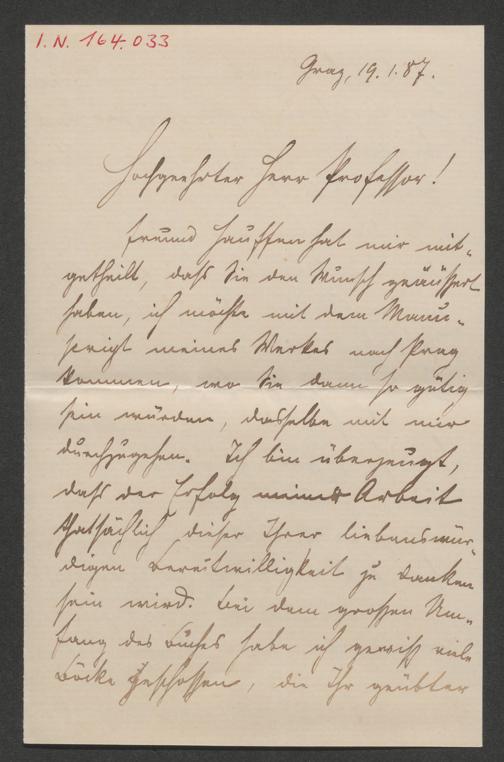 I. N. 164.033
Graz, 19. 1. 87.
Hochgeehrter Herr Professor!
Freund Hauffen hat mir mit-
getheilt, daſs Sie den Wunsch geäußert
haben, ich möchte mit dem Manu-
script meines Werkes nach Prag
kommen, wo Sie dann so gütig
sein würden, dasselbe mit mir
durchzugehen. Ich bin überzeugt,
daſs der Erfolg meiner Arbeit
thatsächlich dieser Ihrer liebenswür-
digen Bereitwilligkeit zu danken
sein wird. Bei dem großen Um-
fang des Buches habe ich gewiß viele
Böcke geschossen, die Ihr geübter